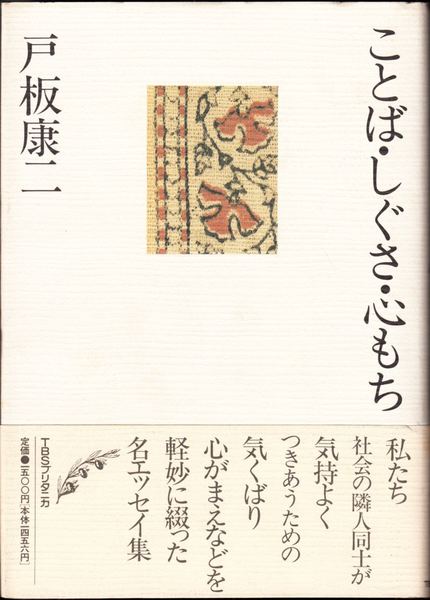 ことば・しぐさ・心もち
戸板康二
私たち
社会の隣人同士が
気持よく
つきあうための
気くばり
心がまえなどを
軽妙に綴った
名エッセイ集
TBSブリタニカ
定価●一五〇〇円[本体一四五六円]